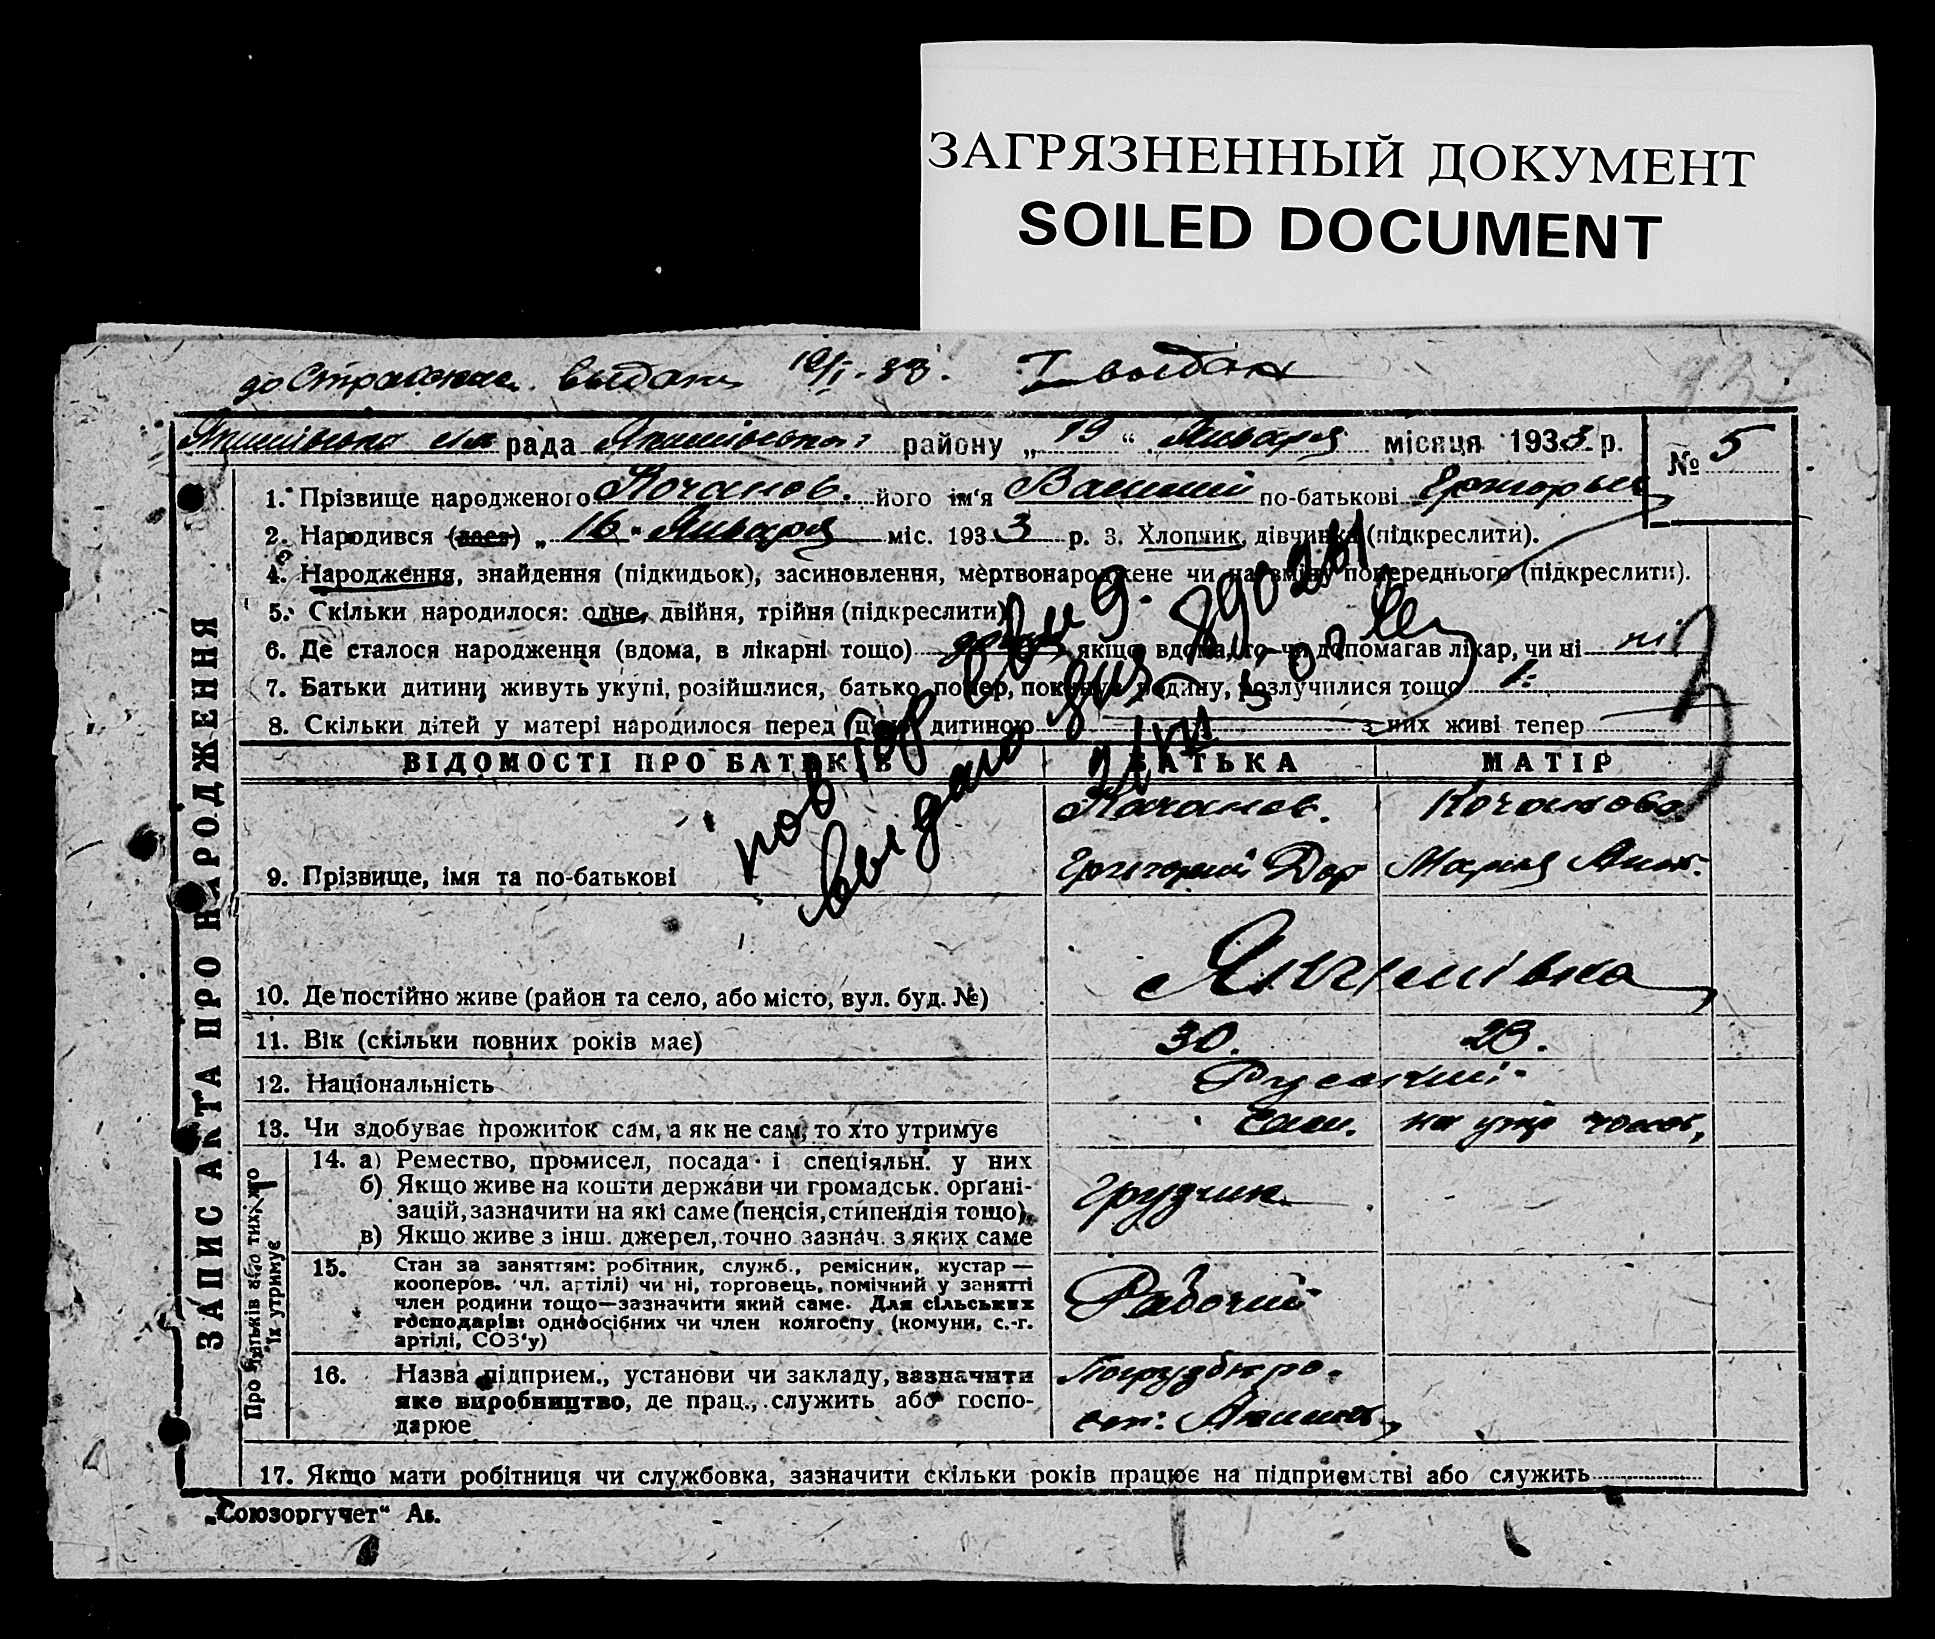 ЗАГРЯЗНЕННЫЙ ДОКУМЕНТ
SOILED DOCUMENT
выдан 19/I-33. I выдан
рада району „19“ Января місяця 1933 р.
№ 5
1. Прізвище народженого Кочанов. його ім'я Василий по-батькові Григорьев
2. Народився (лася) „16“ Января міс. 1933 р. 3. Хлопчик, дівчинка (підкреслити).
4. Народження, знайдення (підкидьок), засиновлення, мертвонароджене чи на зміну попереднього (підкреслити).
5. Скільки народилося: одне, двійня, трійня (підкреслити)
6. Де сталося народження (вдома, в лікарні тощо) дома якщо вдома, то чи допомагав лікар, чи ні ні
7. Батьки дитини живуть укупі, розійшлися, батько помер, покинув родину, розлучилися тощо 1.
8. Скільки дітей у матері народилося перед цією дитиною з них живі тепер
повтор выд.
выдано
ЗАПИС АКТА ПРО НАРОДЖЕННЯ
ВІДОМОСТІ ПРО БАТЬКІВ БАТЬКА МАТІР
Кочанов. Кочанова
9. Прізвище, імя та по-батькові Григорий Дор Мария Ант.
10. Де постійно живе (район та село, або місто, вул. буд. №) Якимівка
11. Вік (скільки повних років має) 30. 23.
12. Національність Руський
13. Чи здобуває прожиток сам, а як не сам, то хто утримує Сам. на утр
Про батьків або тих, хто
їх утримує
14. а) Ремество, промисел, посада і спеціяльн. у них
б) Якщо живе на кошти держави чи громадськ. органі-
зацій, зазначити на які саме (пенсія, стипендія тощо)
в) Якщо живе з інш. джерел, точно зазнач. з яких саме
Грузчик
15. Стан за заняттям: робітник, служб., ремісник, кустар —
кооперов. чл. артілі) чи ні, торговець, помічний у занятті
член родини тощо—зазначити який саме. Для сільських
господарів: одноосібних чи член колгоспу (комуни, с.-г.
артілі, СОЗ'у)
Рабочий
16. Назва підприєм., установи чи закладу, зазначити
яке виробництво, де прац., служить або госпо-
дарює
Погрузбюро.
ст. Аким
17. Якщо мати робітниця чи службовка, зазначити скільки років працює на підприємстві або служить
„Союзоргучет“ Ак.